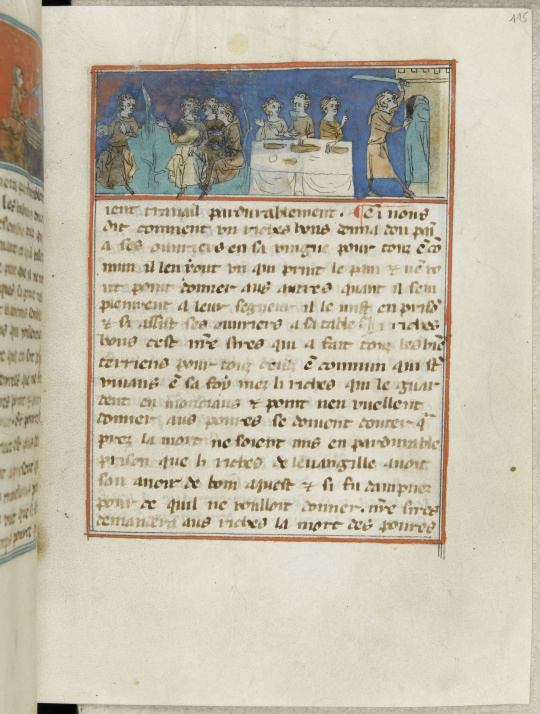 115
ient travail pardurablement. Ci nous
dit comment vn riches hons dona dou pain
a ses ouuriers en sa vingne pour touz ē cō
mun il len vont vn qui print le pain & ne vo
ut point donner aus autres quant il sen
pleinrent a leur segneur il le mist en prisō
& si assist ses ouuriers a sa table Li riches
hons cest nr̄e sires qui a fait touz les biēs
terriens pour touz ceus ē commun qui sōt
viuans ē sa foy mez li riches qui le guar
dent en monciaus & point nen vuellent
donner aus poures se doiuent douter q̄
prez la mort ne soient mis en pardurable
prison que li riches de leuangille auoit
son auoir de bom aquest & si fu dampnez
pour ce quil ne vouloit donner. nr̄e sires
demandera aus riches la mort des poures